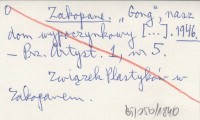 O
Zakopane. „Gong", nasz
dom wypoczynkowy [...]. 1946.
– Prz. Artyst. 1, nr 5.
Związek Plastyków w
Zakopanem.